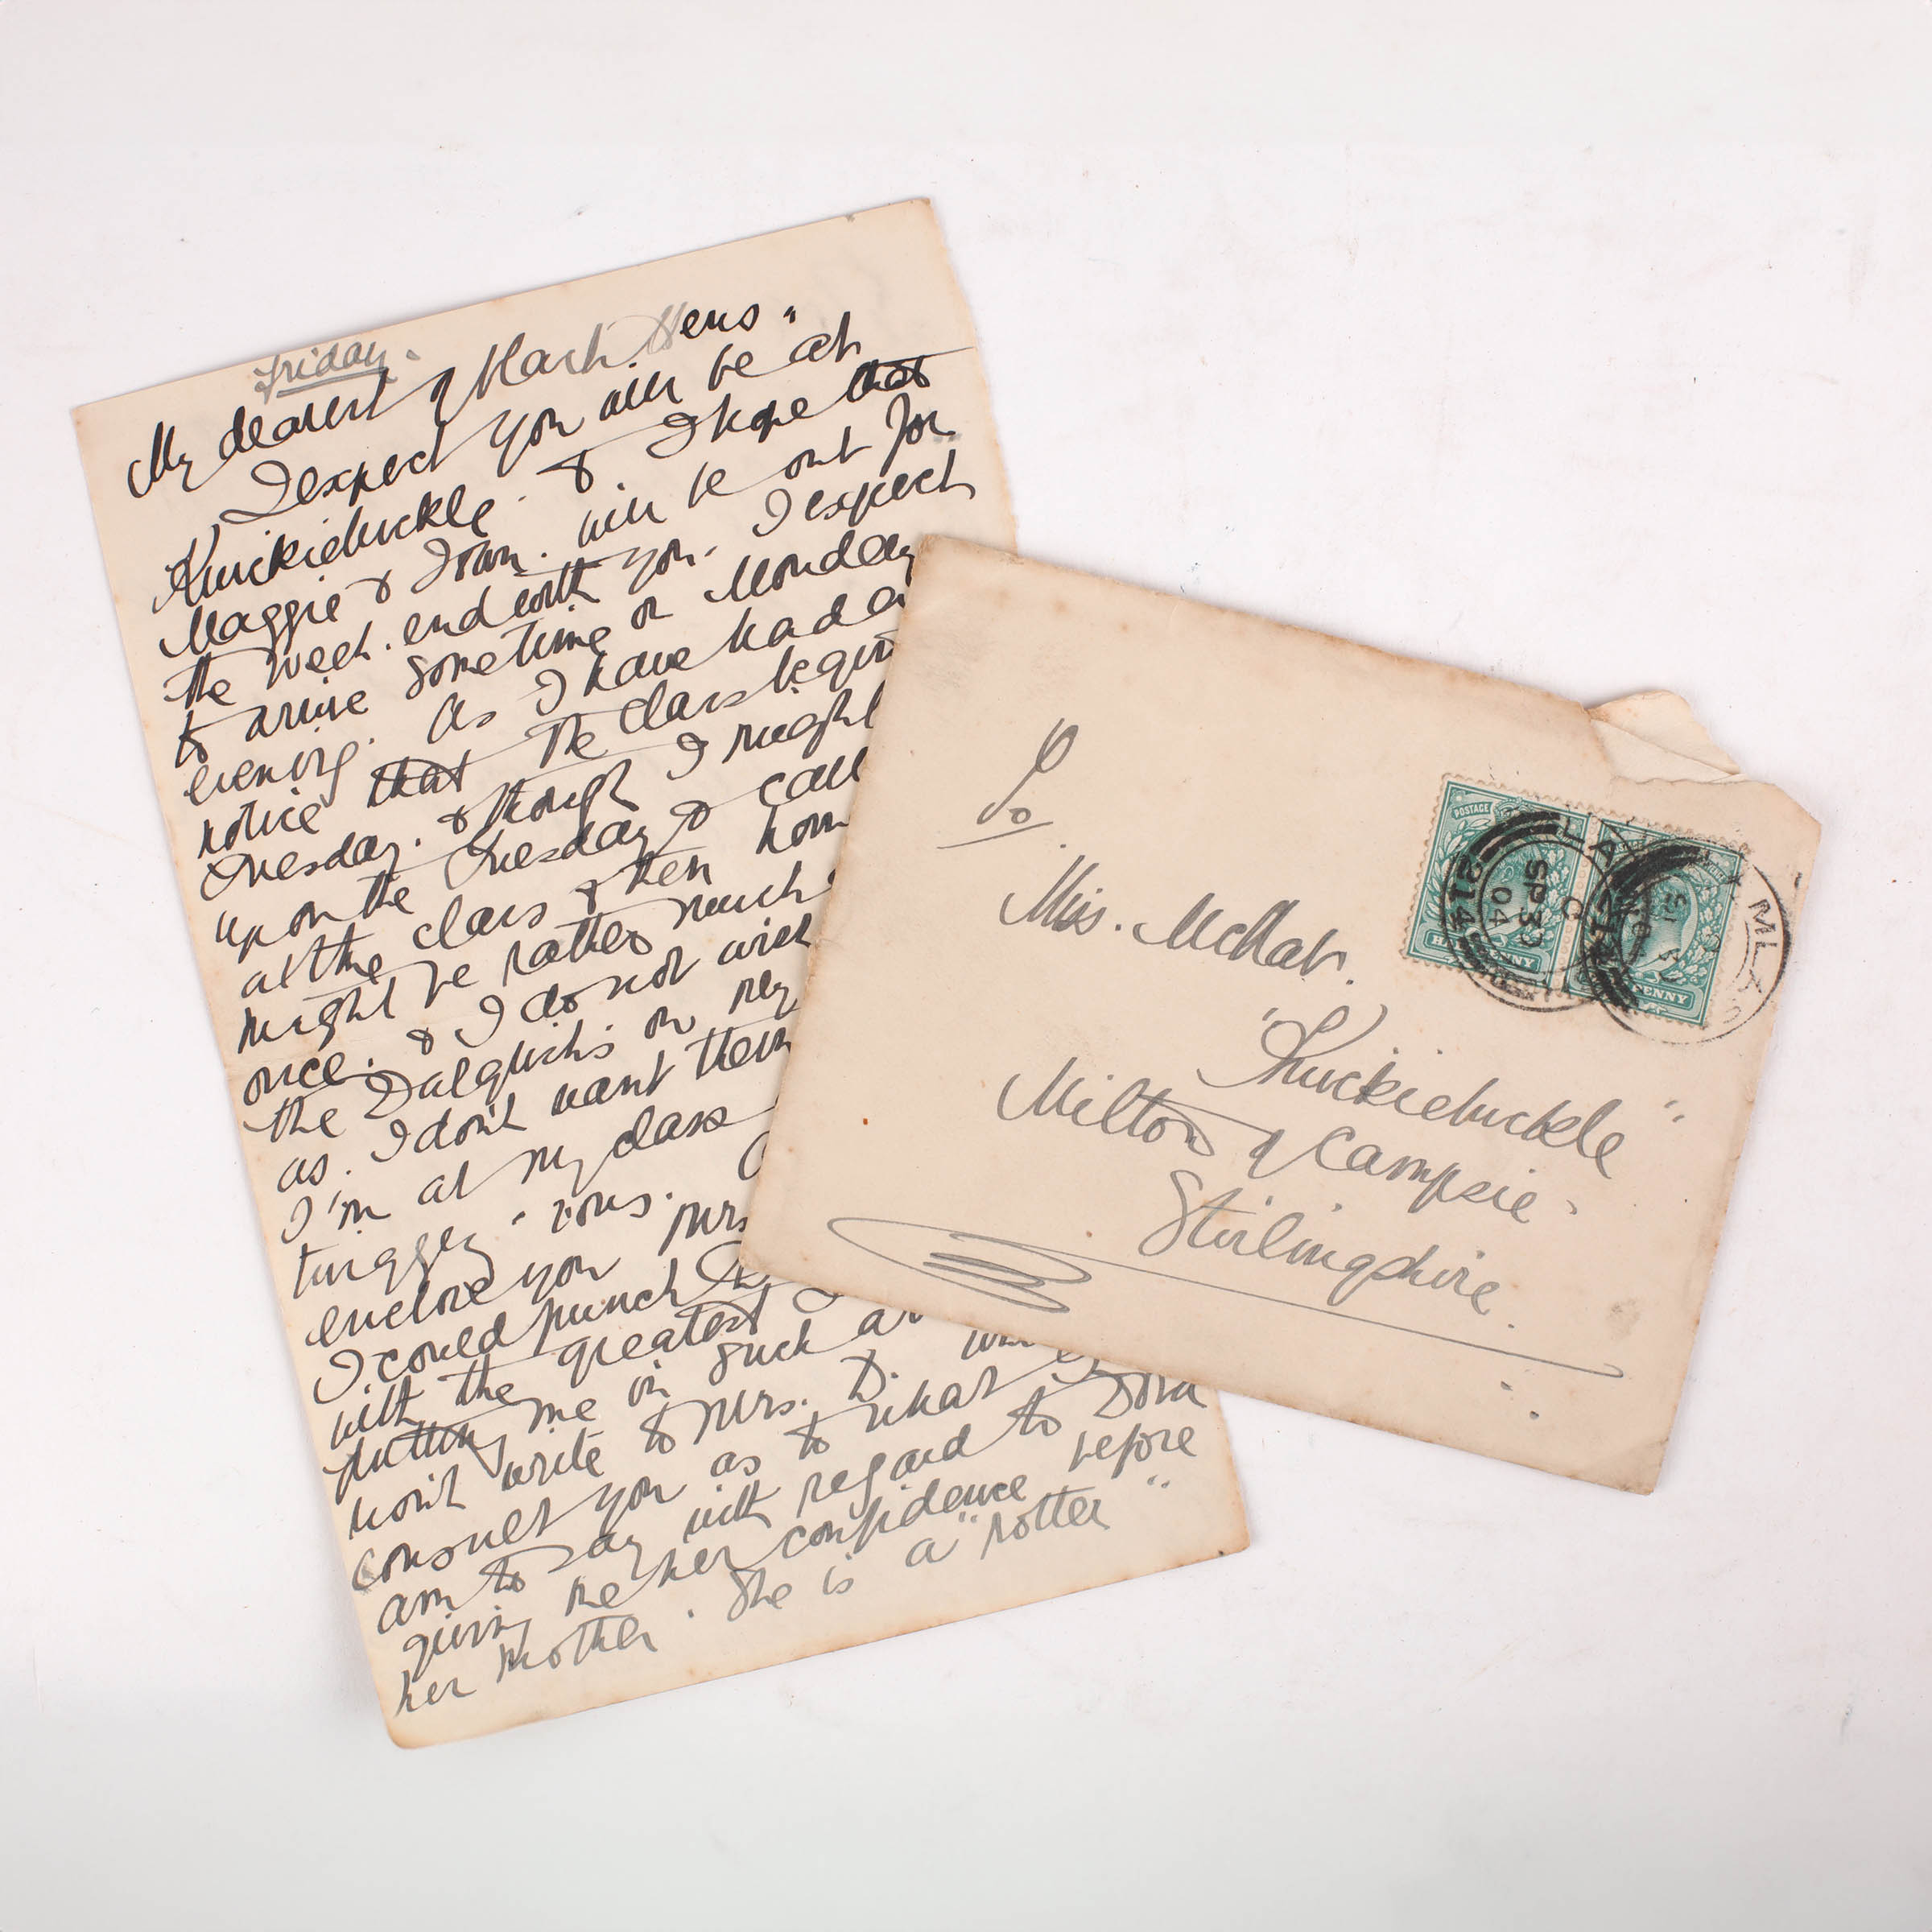 Friday.
My dearest of Mach. Hens"
I expect you will be at
Knickiebuckle. & I hope that
Maggie & Ivan. will be out for
the week. end with you. I expect
to arrive sometime on Monday
evening. As I have had a
notice that the class begins
Tuesday. & though I might
upon the Tuesday & call
at the class & then home
might be rather much
once. & I do not wish
the Dalglish's on my
as. I don't want them
I'm at my class
twiggey - vous.
enclose you Mrs
I could punch
with the greatest
putting me in such a
won't write to Mrs. D.
consult you as to what
am to say with regard to Dora
giving me her confidence before
her mother. She is a "rotter"
To
Miss. McNab.
"Knickiebuckle"
Milton of Campsie.
Stirlingshire.
POSTAGE
HALFPENNY
PENNY
214
SP 30
04